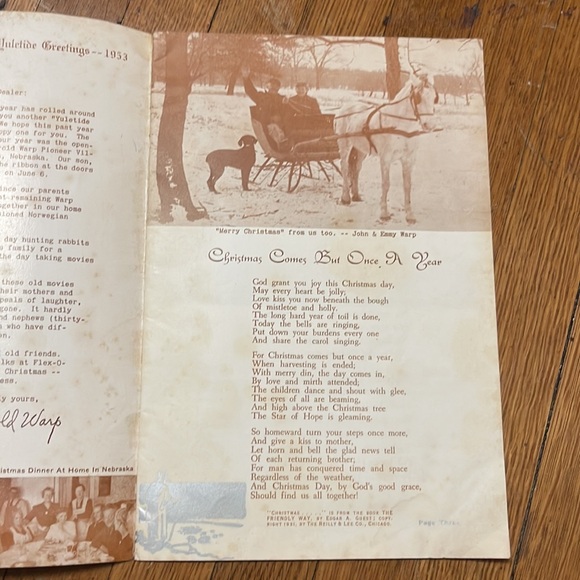 Yuletide Greetings -- 1953
Dealer:
year has rolled around
you another "Yuletide
We hope this past year
appy one for you. The
our year was the open-
old Warp Pioneer Vil-
, Nebraska. Our son,
the ribbon at the doors
on June 6.
ince our parents
Warp
ogether in our home
Norwegian
day hunting rabbits
s family for a
the day taking movies
these old movies
heir mothers and
peals of laughter,
gone. It hardly
nd nephews (thirty-
s who have dif-
en.
old friends.
alks at Flex-O-
Christmas --
ess.
ly yours,
old Warp
istmas Dinner At Home In Nebraska
"Merry Christmas" from us too. -- John & Emmy Warp
Christmas Comes But Once A Year
God grant you joy this Christmas day,
May every heart be jolly;
Love kiss you now beneath the bough
Of mistletoe and holly.
The long hard year of toil is done,
Today the bells are ringing,
Put down your burdens every one
And share the carol singing.
For Christmas comes but once a year,
When harvesting is ended;
With merry din, the day comes in,
By love and mirth attended;
The children dance and shout with glee,
The eyes of all are beaming,
And high above the Christmas tree
The Star of Hope is gleaming.
So homeward turn your steps once more,
And give a kiss to mother,
Let horn and bell the glad news tell
Of each returning brother;
For man has conquered time and space
Regardless of the weather,
And Christmas Day, by God's good grace,
Should find us all together!
"Christmas . . . . ." is from the book THE
FRIENDLY WAY, by Edgar A. Guest; copy-
right 1931, by The Reilly & Lee Co., Chicago.
Page Three